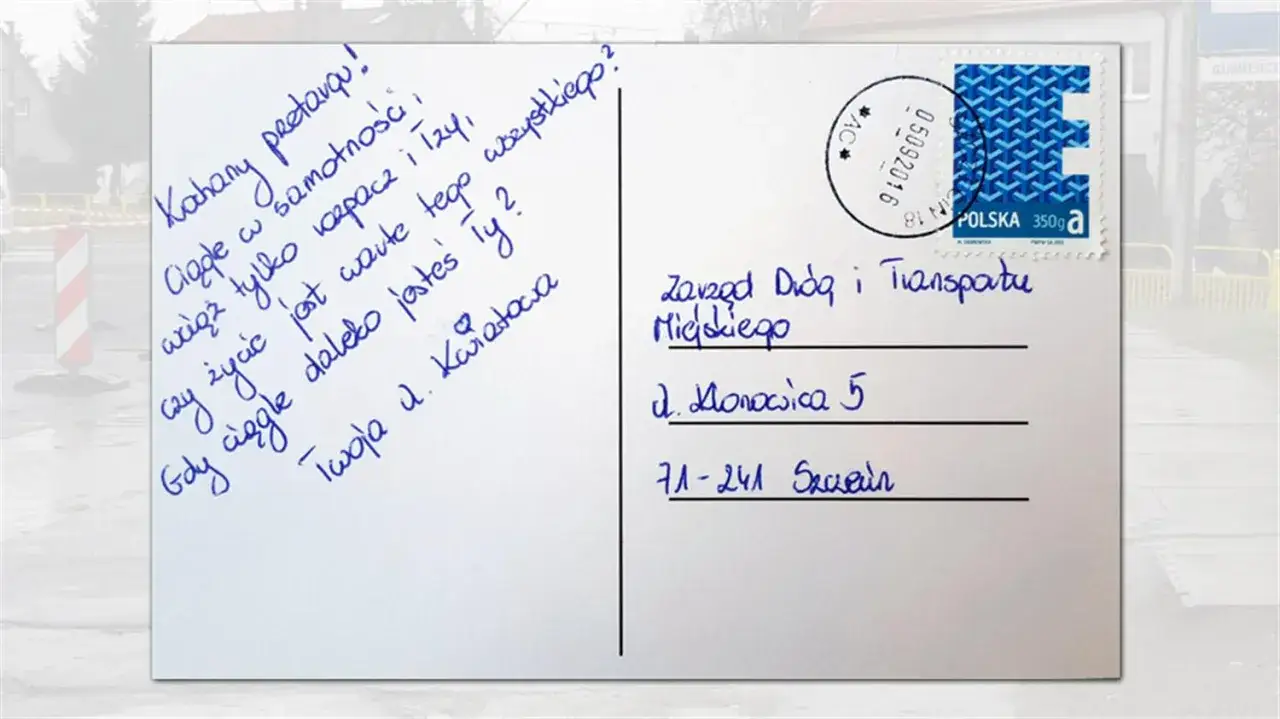 Kochany przetargu!
Ciągle w samotności i
wciąż tylko rozpacz i łzy,
czy życie jest warte tego wszystkiego?
Gdy ciągle daleko jesteś Ty?
Twoja ul. Kwiatowa
*AC*
05092016
SZCZECIN 18
POLSKA 350g a
Zarząd Dróg i Transportu
Miejskiego
ul. Klonowica 5
71-241 Szczecin